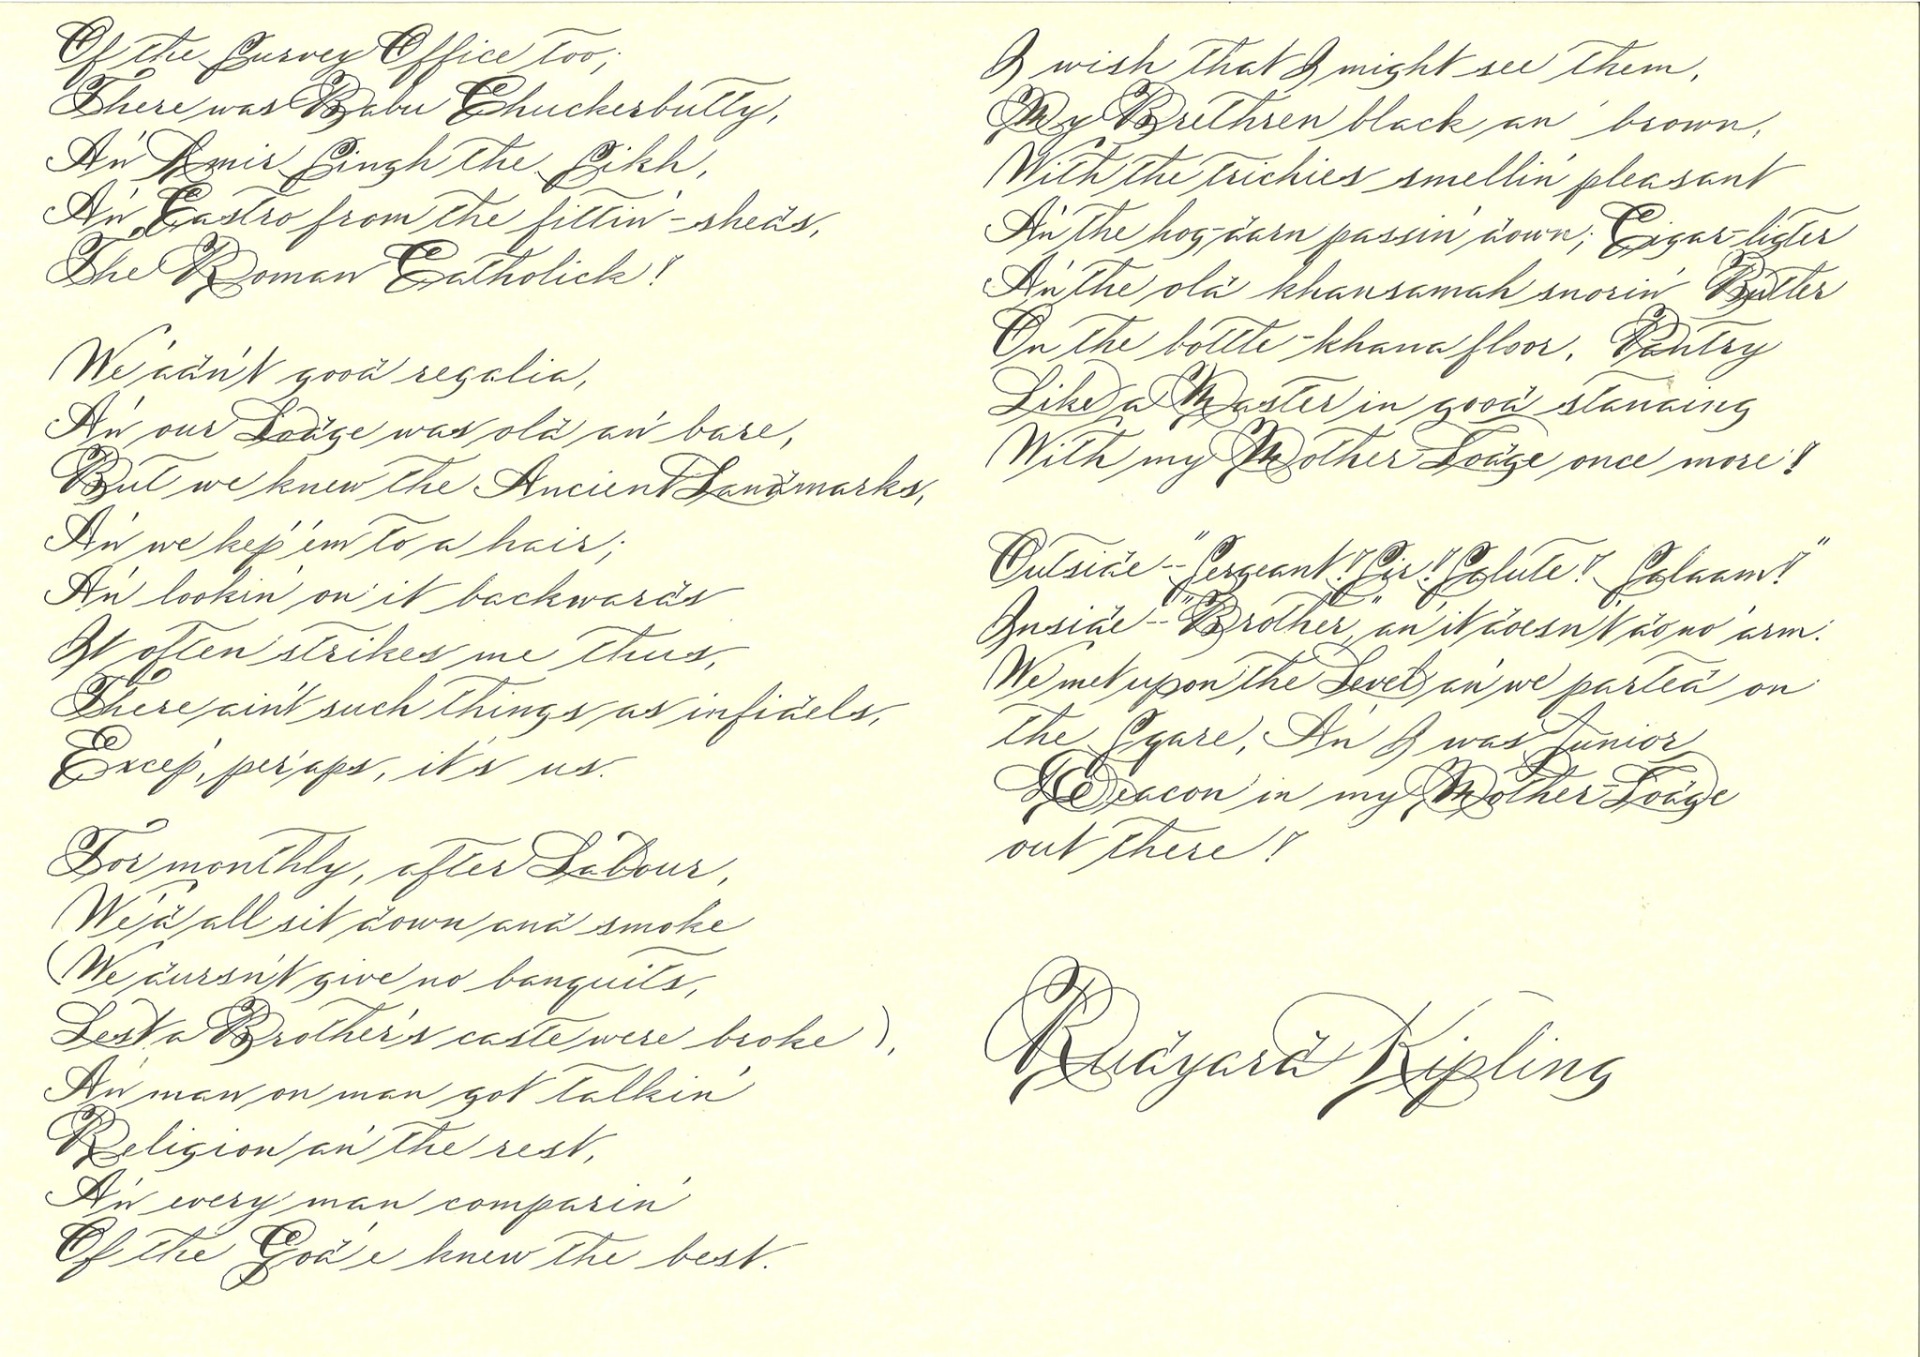 Of the Survey Office too;
There was Babu Chuckerbutty,
An' Amir Singh the Sikh,
An' Castro from the fittin'-sheds,
The Roman Catholick!
We 'adn't good regalia,
An' our Lodge was old an' bare,
But we knew the Ancient Landmarks,
An' we kep' 'em to a hair;
An' lookin' on it backwards
It often strikes me thus,
There ain't such things as infidels,
Excep', per'aps, it's us.
For monthly, after Labour,
We'd all sit down and smoke
(We dursn't give no banquits,
Lest a Brother's caste were broke),
An' man on man got talkin'
Religion an' the rest,
An' every man comparin'
Of the God 'e knew the best.
I wish that I might see them,
My Brethren black an' brown,
With the trichies smellin' pleasant
An' the hog-darn passin' down; Cigar-ligter
An' the old khansamah snorin' Butler
On the bottle-khana floor, Pantry
Like a Master in good standing
With my Mother Lodge once more!
Outside -- "Sergeant! Sir! Salute! Salaam!"
Inside -- "Brother," an' it doesn't do no 'arm.
We met upon the Level an' we parted on
the Sqare, An' I was Junior
Deacon in my Mother-Lodge
out there!
Rudyard Kipling